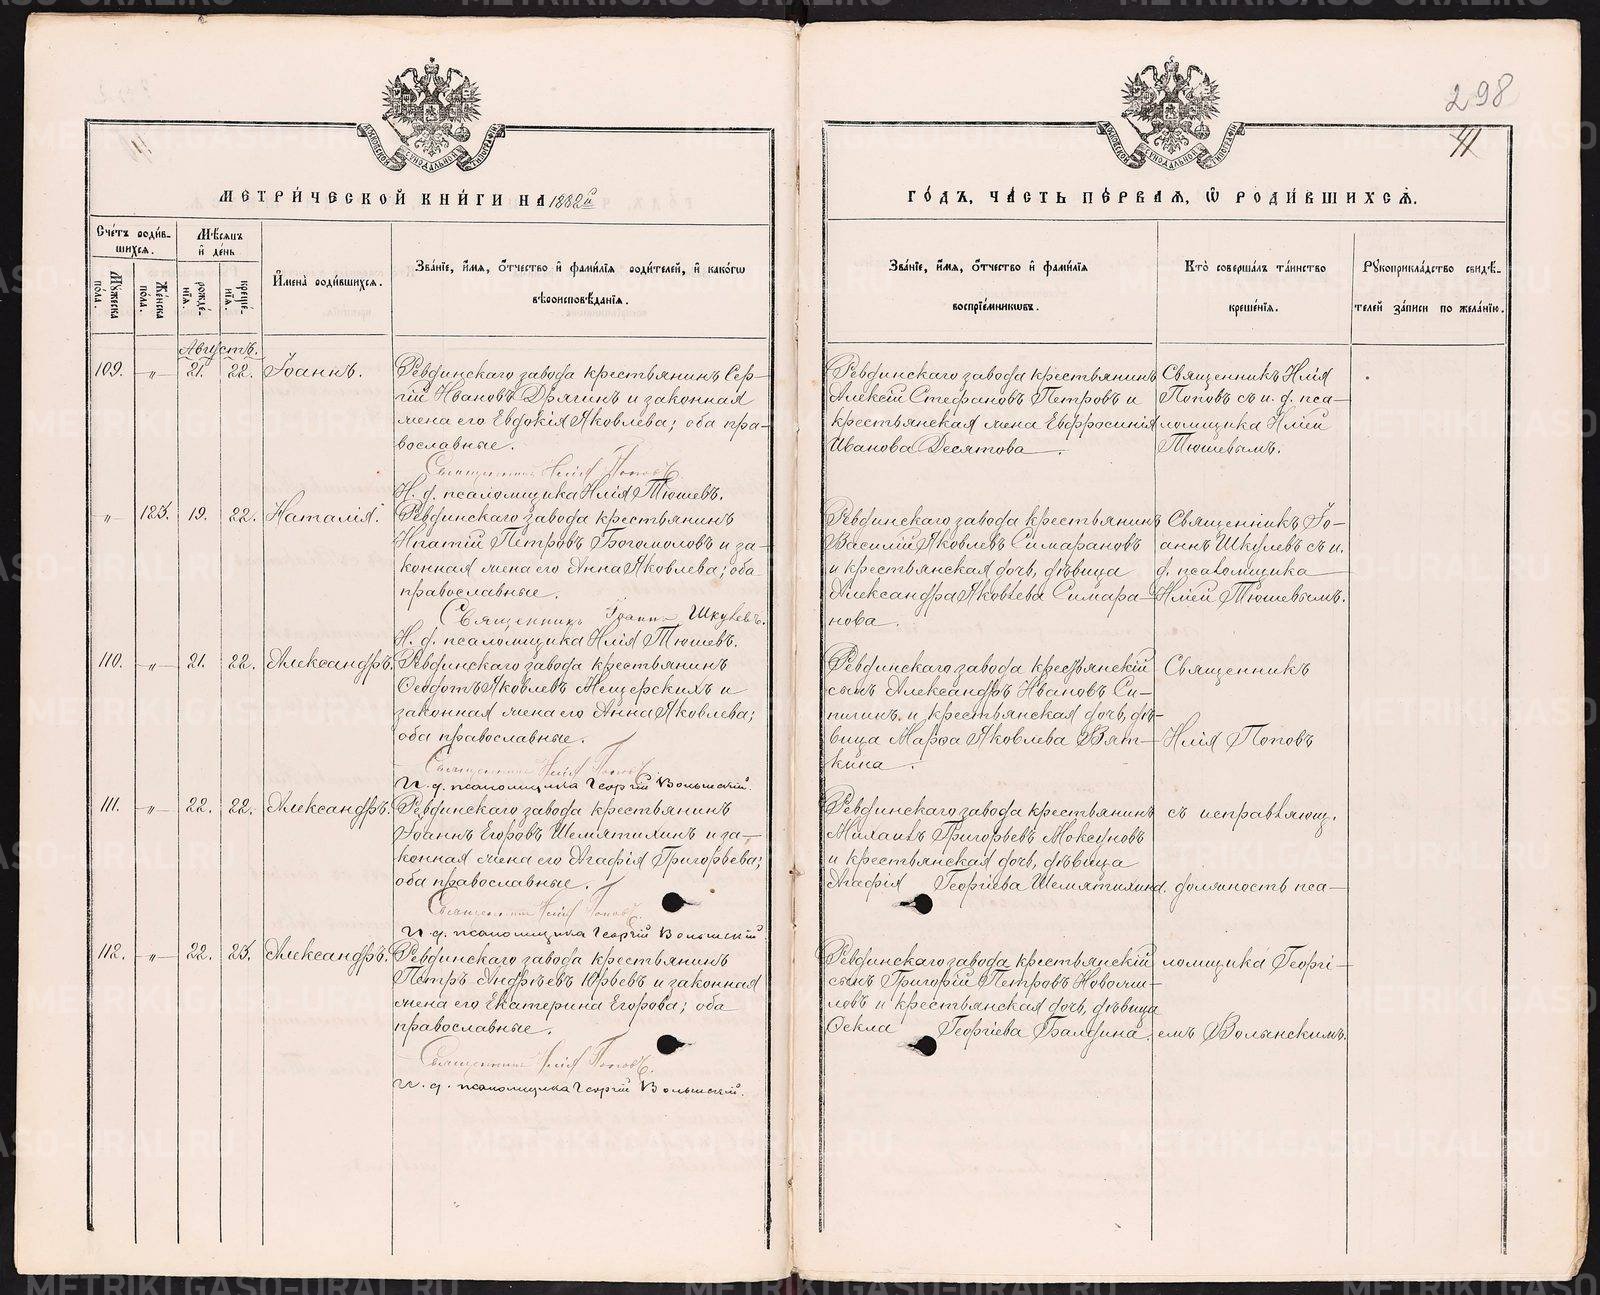 298
41
МЕТРИ́ЧЕСКОЙ КНИ́ГИ НА 1882й
ГО́ДЪ, ЧА́СТЬ ПЕ́РВАЯ, Ѿ РОДИ́ВШИХСЯ.
Сче́тъ роди́в-
шихся.
Му́жеска по́ла.
Же́нска по́ла.
Мѣ́сяцъ
и де́нь
рожде́-
нія.
креще́-
нія.
Имена̀ роди́вшихся.
Зва́ніе, и́мя, о́тчество и фами́лія роди́телей, и како́гѡ
вѣроисповѣ́данія.
Зва́ніе, и́мя, о́тчество и фами́лія
воспріе́мниковъ.
Кто̀ соверша́лъ та́инство
креще́нія.
Рукоприкла́дство свидѣ́-
телей за́писи по жела́нію.
Августъ.
109. -"- 21. 22. Іоаннъ.
Ревдинскаго завода крестьянинъ Сер-
гій Ивановъ Дрягинъ и законная
жена его Евдокія Яковлева; оба пра-
вославные.
Священникъ Илія Поповъ
И. д. псаломщика Илія Тюшевъ.
Ревдинскаго завода крестьянинъ
Алексій Стефановъ Петровъ и
крестьянская жена Евфросинія
Иванова Десятова.
Священникъ Илія
Поповъ съ и. д. пса-
ломщика Иліей
Тюшевымъ.
-"- 123. 19. 22. Наталія.
Ревдинскаго завода крестьянинъ
Ипатій Петровъ Богомоловъ и за-
конная жена его Анна Яковлева; оба
православные.
Священникъ Іоаннъ Шкулевъ.
И. д. псаломщика Илія Тюшевъ.
Ревдинскаго завода крестьянинъ
Василій Яковлевъ Симарановъ
и крестьянская дочь, дѣвица
Александра Яковлева Симара-
нова.
Священникъ Іо-
аннъ Шкулевъ съ и.
д. псаломщика
Иліей Тюшевымъ.
110. -"- 21. 22. Александръ.
Ревдинскаго завода крестьянинъ
Ѳеодотъ Яковлевъ Мещерскихъ и
законная жена его Анна Яковлева;
оба православные.
Священникъ Илія Поповъ
И. д. псаломщика Георгій Волынскій.
Ревдинскаго завода крестьянскій
сынъ Александръ Ивановъ Си-
пигинъ и крестьянская дочь, дѣ-
вица Марѳа Яковлева Вят-
кина.
Священникъ
Илія Поповъ
111. -"- 22. 22. Александръ.
Ревдинскаго завода крестьянинъ
Іоаннъ Егоровъ Шемятихинъ и за-
конная жена его Агафія Григорьева;
оба православные.
Священникъ Илія Поповъ.
И. д. псаломщика Георгій Волынскій
Ревдинскаго завода крестьянинъ
Михаилъ Григорьевъ Мокеуновъ
и крестьянская дочь, дѣвица
Агафія Георгіева Шемятихина.
съ исправляющ.
должность пса-
112. -"- 22. 23. Александръ.
Ревдинскаго завода крестьянинъ
Петръ Андрѣевъ Юрьевъ и законная
жена его Екатерина Егорова; оба
православные.
Священникъ Илія Поповъ.
И. д. псаломщика Георгій Волынскій.
Ревдинскаго завода крестьянскій
сынъ Григорій Петровъ Новоши-
ловъ и крестьянская дочь, дѣвица
Ѳекла Георгіева Балдина.
ломщика Георгі-
емъ Волынскимъ.
METRIKI.GASO-URAL.RU